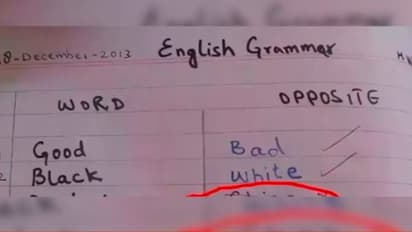 8-December-2013 English Grammar
WORD OPPOSITE
Good Bad
Black White